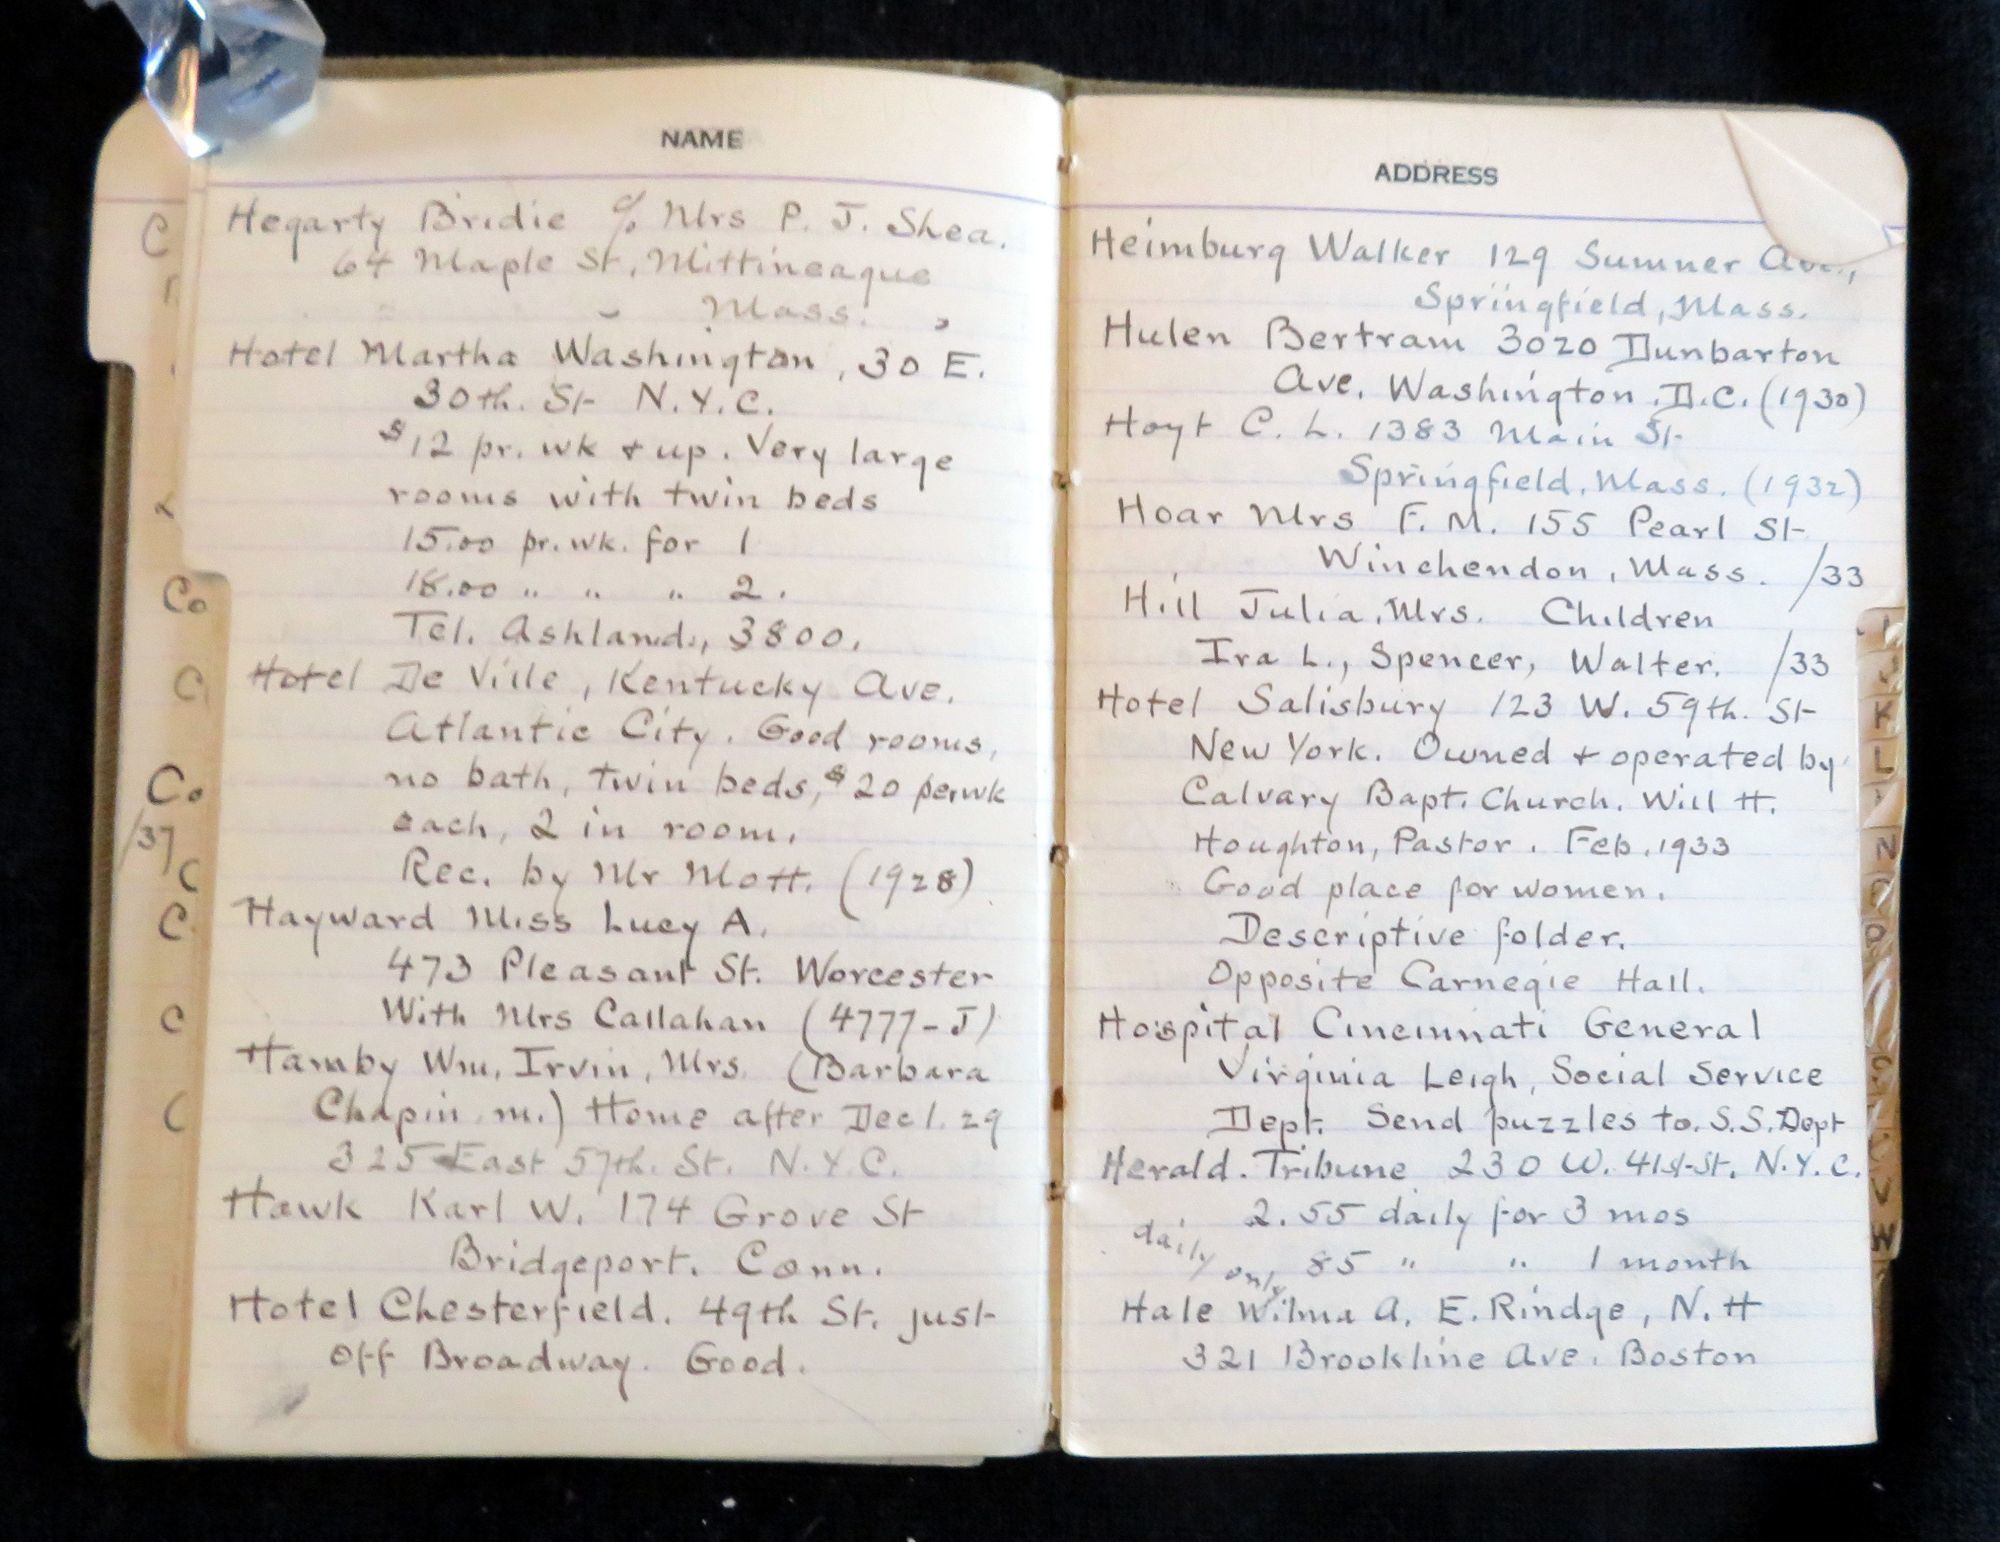 NAME
Hegarty Bridie c/o Mrs P. J. Shea.
64 Maple St, Mittineague
Mass.
Hotel Martha Washington, 30 E.
30th. St N.Y.C.
$12 pr. wk + up. Very large
rooms with twin beds
15.00 pr. wk. for 1
18.00 " " " 2.
Tel. Ashland, 3800.
Hotel De Ville, Kentucky Ave.
Atlantic City. Good rooms,
no bath, twin beds, $20 per wk
each, 2 in room.
Rec. by Mr Mott. (1928)
Hayward Miss Lucy A.
473 Pleasant St. Worcester
With Mrs Callahan (4777-J)
Hamby Wm, Irvin, Mrs. (Barbara
Chapin m.) Home after Dec 1. 29
325 East 57th. St. N.Y.C.
Hawk Karl W. 174 Grove St
Bridgeport. Conn.
Hotel Chesterfield. 49th St. just
Off Broadway. Good.
C
Co
C
Co
/37
C
C
C
C
ADDRESS
Heimburg Walker 129 Sumner Ave.,
Springfield, Mass.
Hulen Bertram 3020 Dunbarton
Ave. Washington. D.C. (1930)
Hoyt C. L. 1383 Main St
Springfield, Mass. (1932)
Hoar Mrs F. M. 155 Pearl St
Winchendon, Mass. /33
Hill Julia, Mrs. Children
Ira L., Spencer, Walter. /33
Hotel Salisbury 123 W. 59th. St
New York. Owned + operated by
Calvary Bapt. Church. Will H.
Houghton, Pastor. Feb. 1933
Good place for women.
Descriptive folder.
Opposite Carnegie Hall.
Hospital Cincinnati General
Virginia Leigh, Social Service
Dept. Send puzzles to. S.S. Dept
Herald. Tribune 230 W. 41st-St. N.Y.C.
2.55 daily for 3 mos
daily only 85 " " 1 month
Hale Wilma A. E. Rindge, N. H
321 Brookline Ave. Boston
K
L
N
V
W